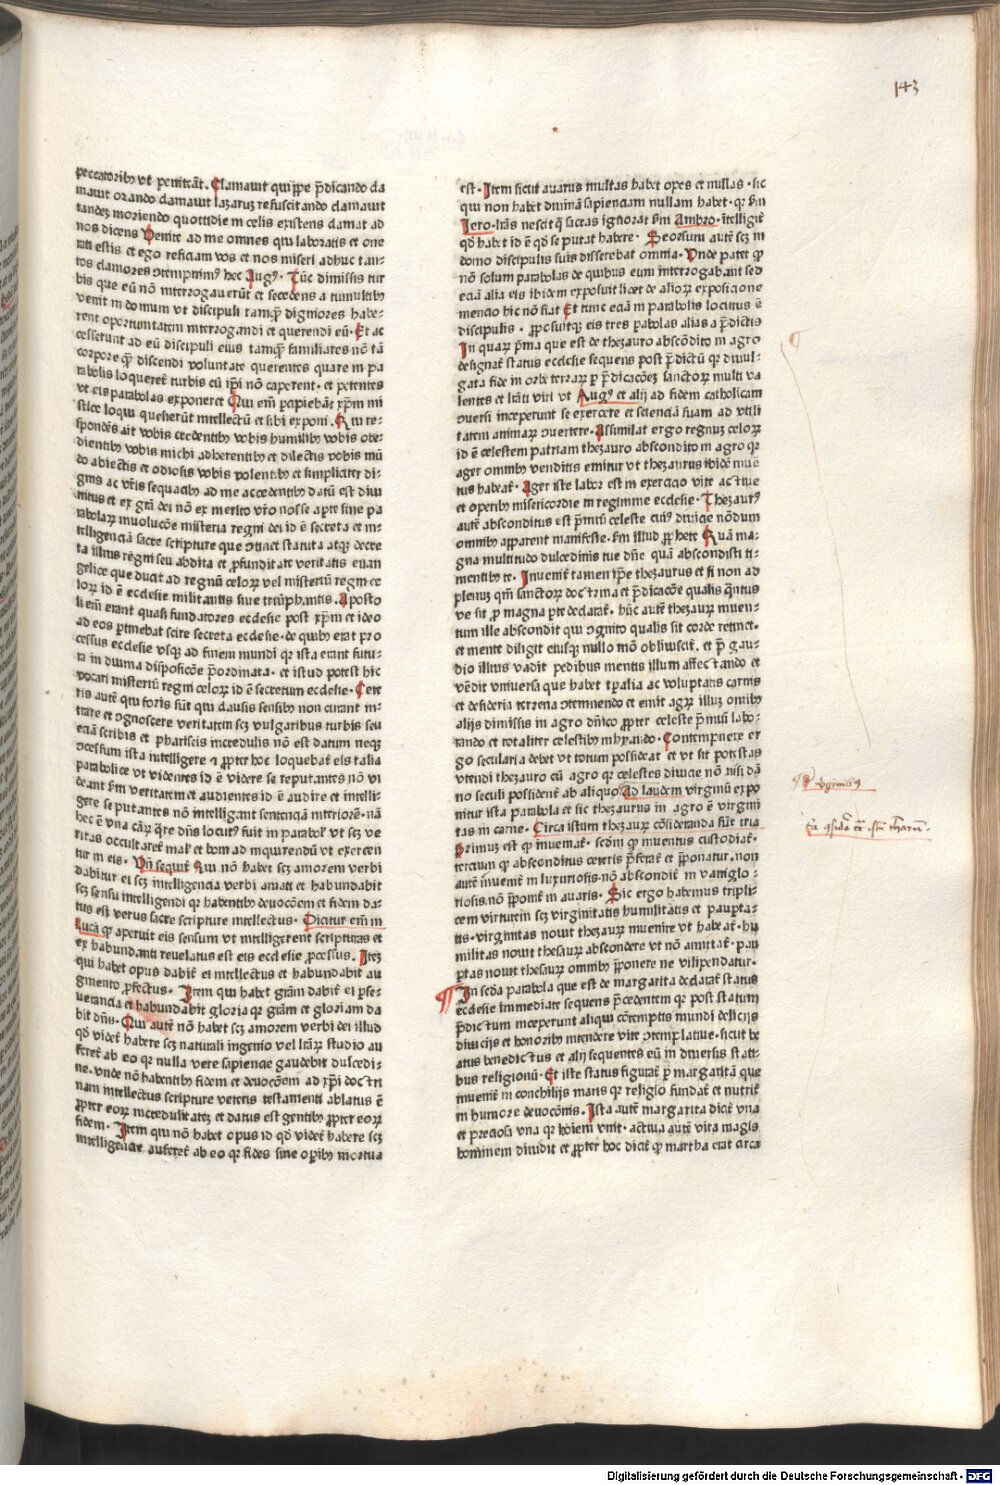 143
peccatoribꝫ vt peniteāt. Clamauit quippe p̄dicando cla
mauit orando clamauit lazarum resuscitando clamauit
tandez moriendo quottidie in celis existens clamat ad
nos dicens Venite ad me omnes qui laboratis et one
rati estis et ego reficiam vos et nos miseri adhuc tan-
tos clamores ɔtempnimꝰ hec Augꝰ. Tūc dimissis tur
bis que eū nō interrogauerūt et secedens a tumultibꝫ
venit in domum vt discipuli tamqꝫ digniores habe-
rent oportunitatem interrogandi et querendi eū. Et ac
cesserunt ad eū discipuli eius tamqꝫ familiares nō tā
corpore qꝫ discendi voluntate querentes quare in pa
rabolis loqueret̄ turbis cū ip̄i nō caperent. et petentes
vt eis parabolas exponeret Qui em̄ p̄cipiebāt xp̄m mi
stice loqui quesierūt intellectū et sibi exponi. Qui re-
spondēs ait vobis credentibꝫ vobis humilibꝫ vobis obe-
dientibꝫ vobis michi adherentibꝫ et dilectis vobis mū
do abiectis et odiosis vobis volentibꝫ et simpliciter di-
gnis ac vr̄is sequacibꝫ ad me accedentibꝫ datū est diui
nitus et ex gr̄a dei nō ex merito vr̄o nosse aꝑte sine pa
rabolaꝝ inuolucōe misteria regni dei id ē secreta et in-
telligenciā sacre scripture que ɔtinet statuta atqꝫ decre
ta illius regni seu abdita et ꝓfunditate veritatis euan
gelice que ducit ad regnū celoꝝ vel misteriū regni ce
loꝝ id ē ecclesie militantis siue triūphantis. Aposto
li em̄ erant quasi fundatores ecclesie post xp̄m et ideo
ad eos ꝑtinebat scire secreta ecclesie. de quibꝫ erat pro
cessus ecclesie vsqꝫ ad finem mundi qꝛ ista erant futu-
ra in diuina disposicōe p̄ordinata. et istud potest hic
vocari misteriū regni celoꝝ id ē secretum ecclesie. Cete
ris autē qui foris sūt qui clausis sensibꝫ non curant in-
trare et ɔgnoscere veritatem scꝫ vulgaribus turbis seu
eciā scribis et phariseis incredulis nō est datum neqꝫ
ɔcessum ista intelligere et ꝓpter hoc loquebat̄ eis talia
parabolice vt videntes id ē videre se reputantes nō vi
deant ẜm veritatem et audientes id ē audire et intelli-
gere se putantes nō intelligant sentenciā interiorē. nā
hec ē vna cāꝝ qr̄e dn̄s locutꝰ fuit in parabol̄ vt scꝫ ve
ritas occultaret̄ mal̄ et bom ad inquirendū vt exercen
tur in eis. Vn̄ sequit̄ Qui nō habet scꝫ amorem verbi
dabitur ei scꝫ intelligencia verbi amati et habundabit
scꝫ sensu intelligendi qꝛ habentibꝫ deuocōem et fidem da-
tus est verus sacre scripture intellectus. Dicitur em̄ in
Luca qꝫ aperuit eis sensum vt intelligerent scripturas et
ex habundanti reuelatus est eis ecclesie ꝓcessus. Itez
qui habet opus dabit̄ ei intellectus et habundabit au
gmento ꝓfectus. Item qui habet gr̄am dabit̄ ei ꝑse-
uerancia et habundabit gloria qꝛ gr̄am et gloriam da
bit dn̄s. Qui autē nō habet scꝫ amorem verbi dei illud
qd̄ videt̄ habere scꝫ naturali ingenio vel lr̄aꝝ studio au
feret̄ ab eo qꝛ nulla vere sapiencie gaudebit dulcedi-
ne. vnde nō habentibꝫ fidem et deuocōem ad xp̄i doctri
nam intellectus scripture veteris testamenti ablatus ē
ꝓpter eoꝝ incredulitatez et datus est gentibꝫ ꝓpter eoꝝ
fidem. Item qui nō habet opus id qd̄ videt̄ habere scꝫ
intelligenciae auferet̄ ab eo qꝛ fides sine oꝑibꝫ mortua
est. Item sicut auarus multas habet opes et nullas. sic
qui non habet diuinā sapienciam nullam habet. qꝛ ẜm
Iero. lr̄as nescit qui sacras ignorat ẜm Ambro. ītelligit̄
qd̄ habet id ē qd̄ se putat habere. Seorsum autē scꝫ in
domo discipulis suis disserebat omnia. Vnde patet qꝫ
nō solum parabolas de quibus eum interrogabant sed
eciā alia eis ibidem exposuit licet de alioꝝ exposicione
mencio hic nō fiat Et tunc eciā in parabolis locutus ē
discipulis. ꝓposuitqꝫ eis tres pabolas alias a p̄dictis
In quaꝝ p̄ma que est de thezauro absconditō in agro
designat̄ status ecclesie sequens post p̄dictū qꝛ diuul-
gata fide in orbe terraꝝ ꝑ p̄dicacōez sanctoꝝ multi va
lentes et lr̄ati viri vt Augꝰ et alij ad fidem catholicam
ɔuersi inceperunt se exercere et scienciā suam ad vtili
tatem animaꝝ ɔuertere. Assimilat ergo regnuꝫ celoꝝ
id ē celestem patriam thezauro abscondito in agro qꝛ
ager omnibꝫ venditis emitur vt thezaurus ibidē inuē
tus habeat̄. Ager iste labor est in exercicio vite actiue
et operibꝫ misericordie in regimine ecclesie. Thezaurꝰ
autē absconditus est p̄miū celeste cuiꝰ diuicie nōdum
omnibꝫ apparent manifeste. ẜm illud ꝓphete Quā ma-
gna multitudo dulcedinis tue dn̄e quā abscondisti ti-
mentibꝫ te. Inuenit̄ tamen ip̄e thezaurus et si non ad
plenuꝫ qm̄ sanctoꝝ doctrina et p̄dicacōne qualis qͣntus
ve sit ꝓ magna ꝑte declarat̄. hūc autē thezauꝝ inuen-
tum ille abscondit qui ɔgnito qualis sit corde retinet.
et mente diligit eiusqꝫ nullo mō obliuiscit̄. et p̄ gau-
dio illius vadit pedibus mentis illum affectando et
vēdit vniuersa que habet tp̄alia ac voluptatis carnis
et desideria terrena ɔtemnendo et emit agꝝ illuꝫ omībꝫ
alijs dimissis in agro dn̄ico ꝓpter celeste p̄miū labo-
rando et totaliter celestibꝫ inhyando. Contempnere er
go secularia debet vt totum possideat et vt sit potestas
vtendi thezauro cū agro qꝛ celestes diuicie nō nisi dā
no seculi possidenē ab aliquo Ad laudem virginū expo
nitur ista parabola et sic thezaurus in agro ē virgini
tas in carne. Circa istum thezauꝝ cōsideranda sūt tria
Primuꝫ est qꝫ inueniat̄. scdm̄ qꝫ inuentus custodiat̄.
tercium qꝫ absconditus ceteris p̄ferat̄ et p̄ponatur. non
autē inuenit̄ in luxuriosis. nō abscondit̄ in vaniglo-
riosis. nō p̄ponit̄ in auaris. Sic ergo habemus tripli-
cem virtutem scꝫ virginitatis humilitatis et pauꝑta-
tis. virginitas nouit thezauꝝ inuenire vt habeat. hu
militas nouit thesauꝝ abscondere vt nō amittat. pau
ꝑtas nouit thesauꝝ omnibꝫ p̄ponere ne vilipendatur.
¶ In scd̄a parabola que est de margarita declarat̄ status
ecclesie immediate sequens p̄cedentem qꝛ post statum
p̄dictum inceperunt aliqui cōtemptis mundi delicijs
diuicijs et honoribꝫ intendere vite ɔtemplatiue. sicut be
atus benedictus et alij sequentes eū in diuersis stati-
bus religionū. Et iste status figurat̄ ꝑ margaritā que
inuenit̄ in conchilijs maris qꝛ religio fundat̄ et nutrit̄
in humore deuocōnis. Ista autē margarita dicit̄ vna
et preciosa vna qꝛ hoīem vnit. actiua autē vita magis
hominem diuidit et ꝓpter hoc dicit̄ qꝫ martha erat circa
Digitalisierung gefördert durch die Deutsche Forschungsgemeinschaft - DFG